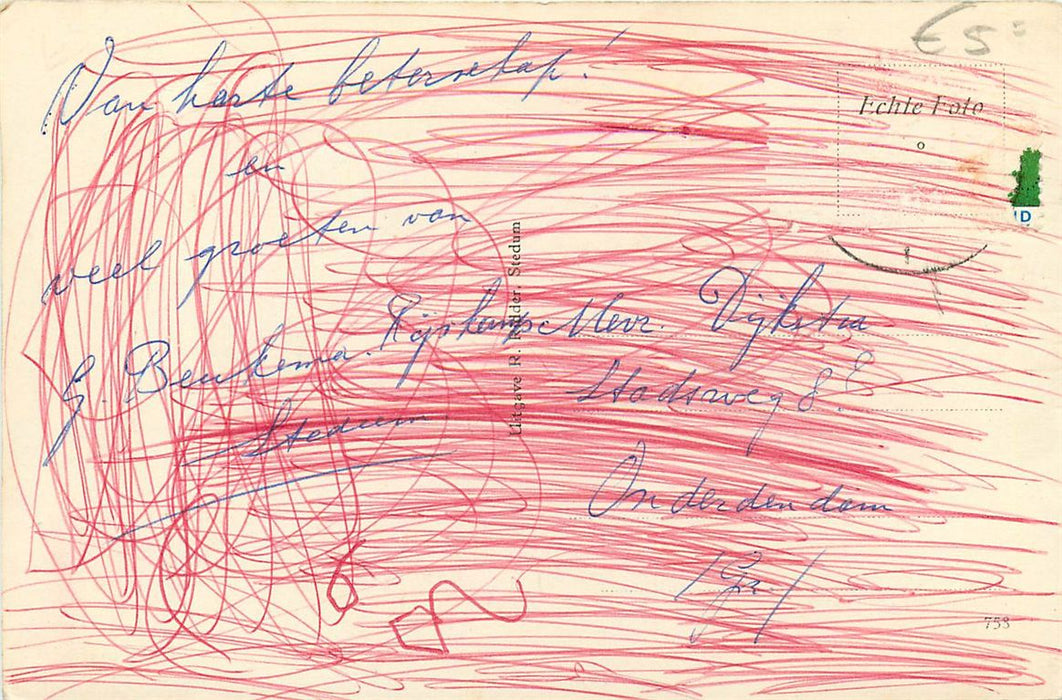 Van harte beterschap!
en
veel groeten van
G. Beukema. Rijskamp
Stedum
Uitgave R. Ridder, Stedum
€ 5
Echte Foto
ND
Mevr. Dijkstra
Stadsweg 8
Onderdendam
(Gr)
753